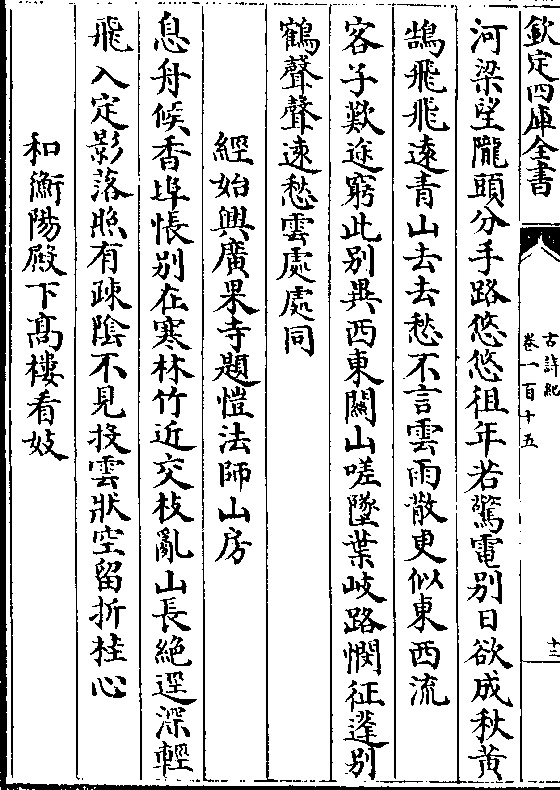 欽定四庫全書
古詩紀
卷一百十五
十三
河梁望隴頭分手路悠悠徂年若驚電别日欲成秋黄
鵠飛飛遠青山去去愁不言雲雨散更似東西流
客子歎途窮此别異西東關山嗟墜葉岐路憫征蓬别
鶴聲聲遠愁雲處處同
經始興廣果寺題愷法師山房
息舟候香埠悵别在寒林竹近交枝亂山長絶逕深輕
飛入定影落照有疎陰不見投雲狀空留折桂心
和衡陽殿下髙樓看妓